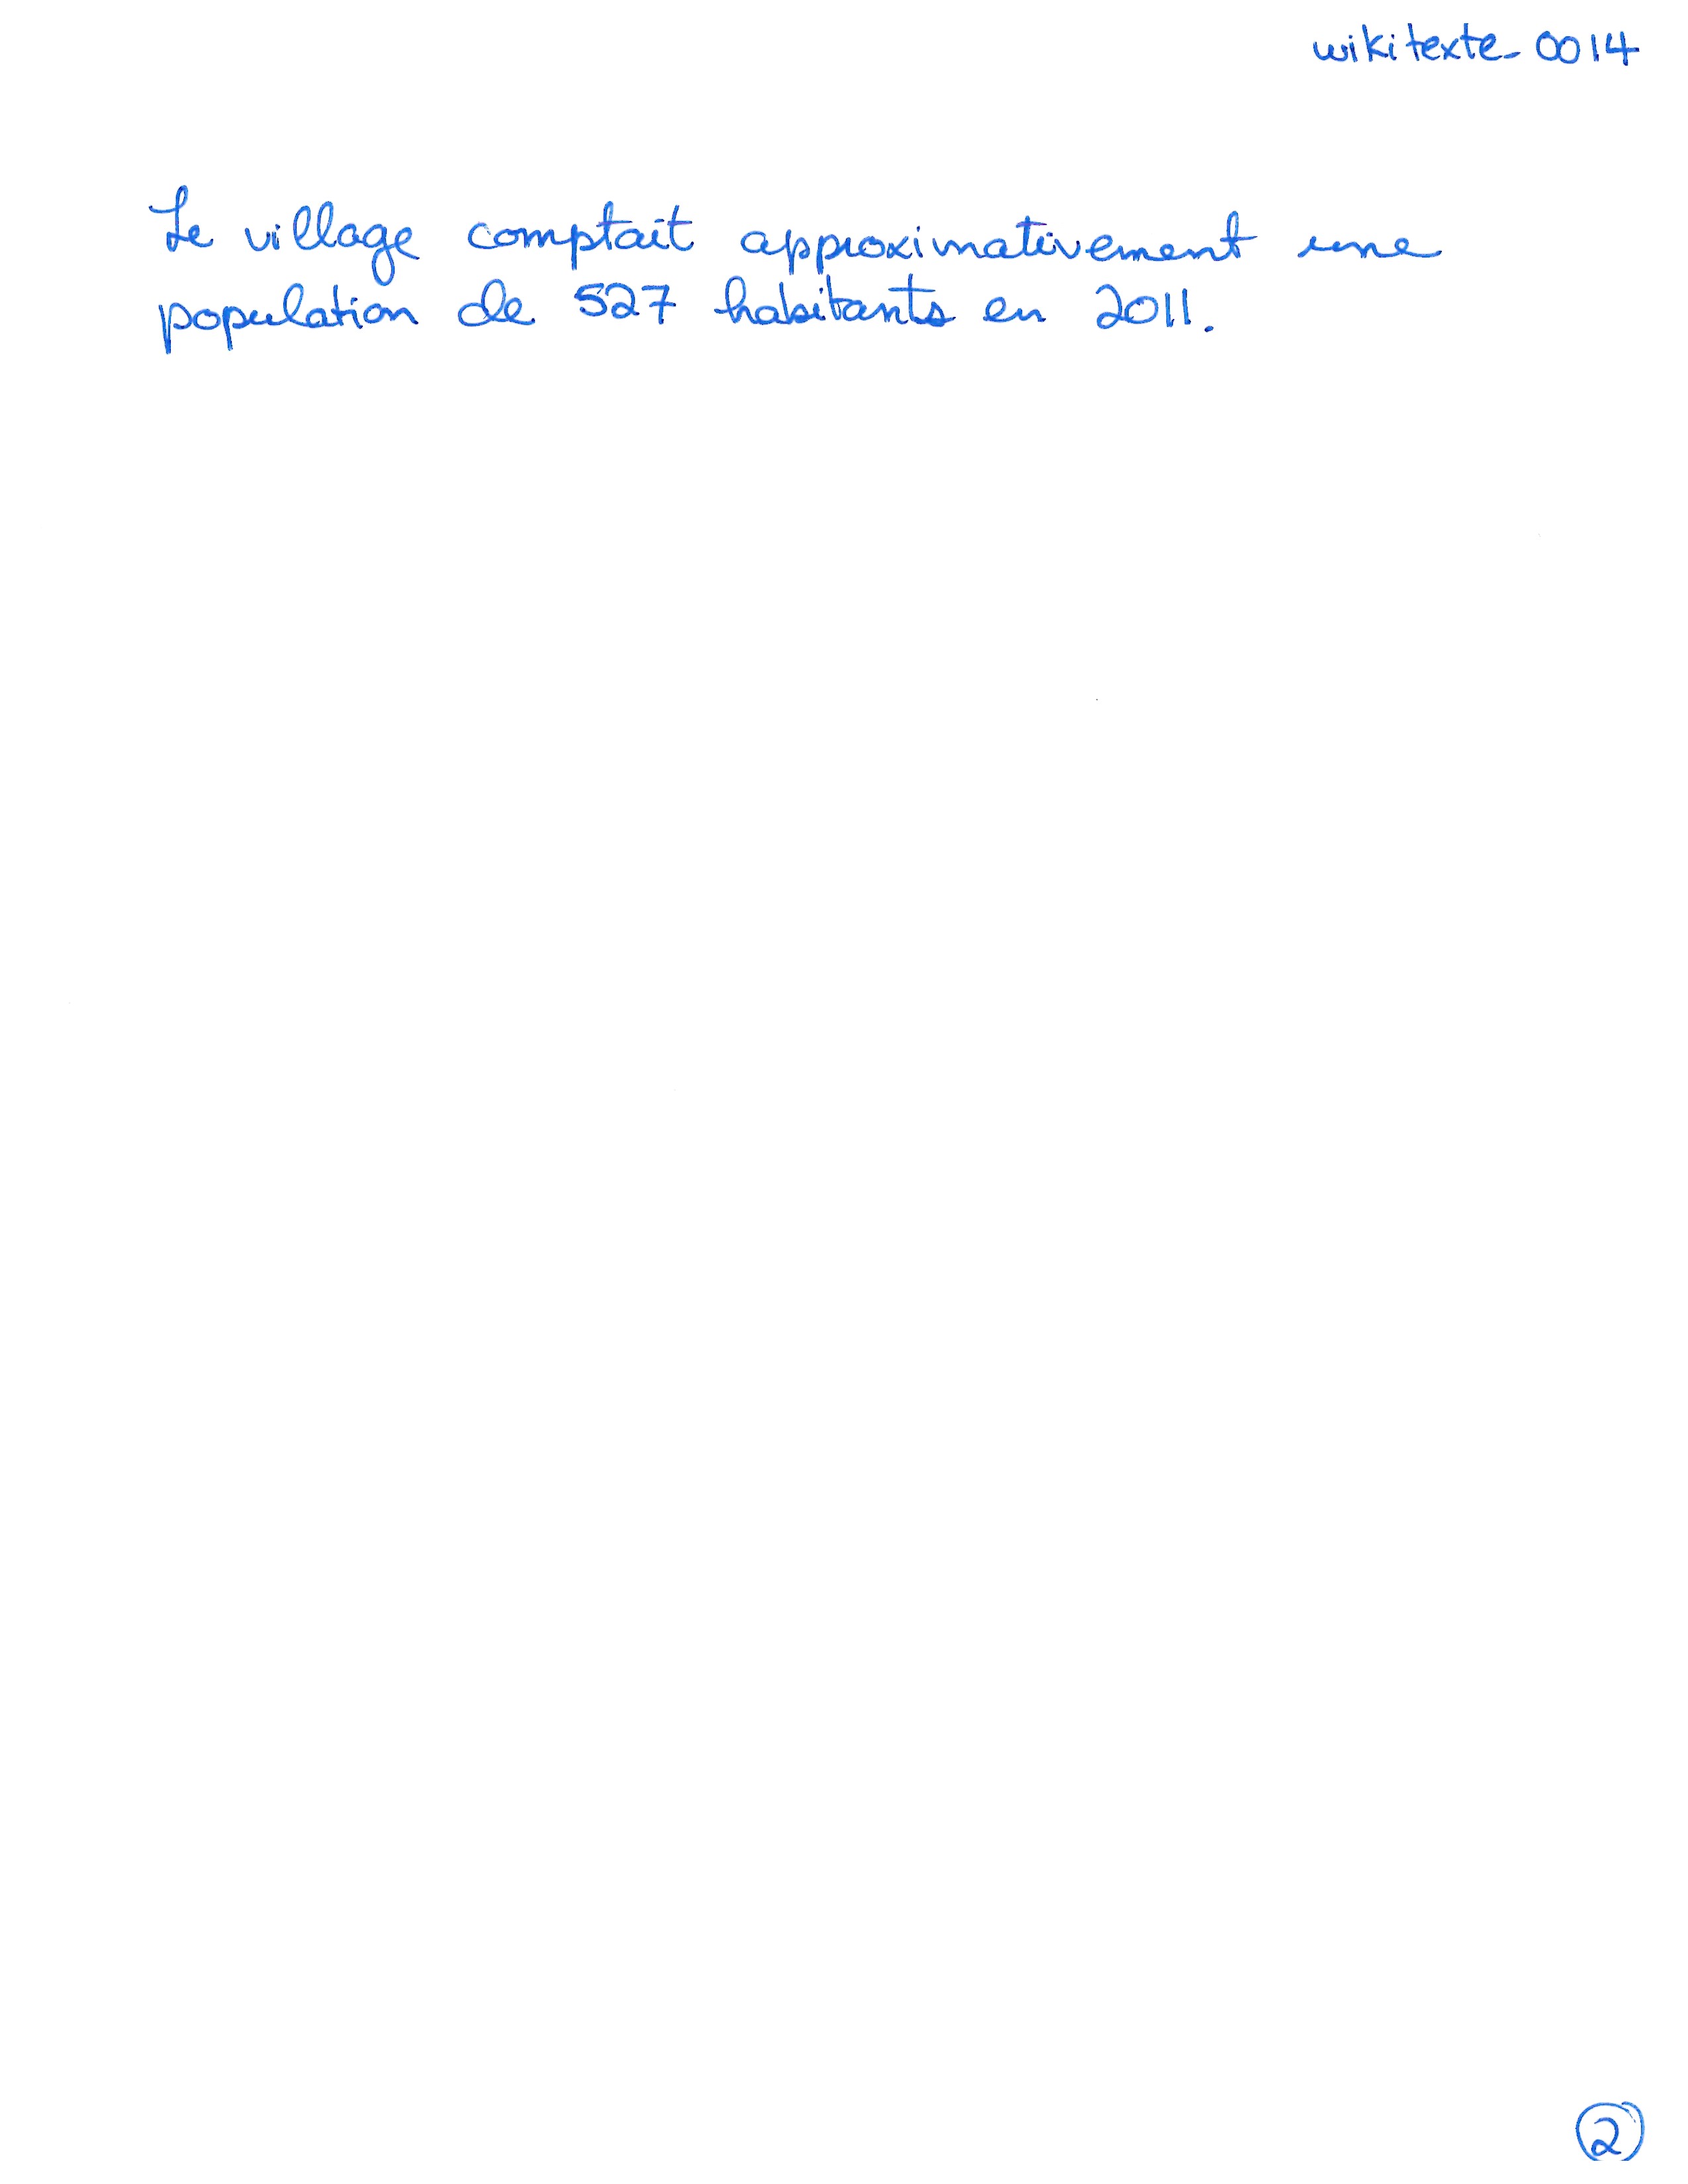 wikitexte_0014
Le village comptait approximativement une
population de 527 habitants en 2011.
2